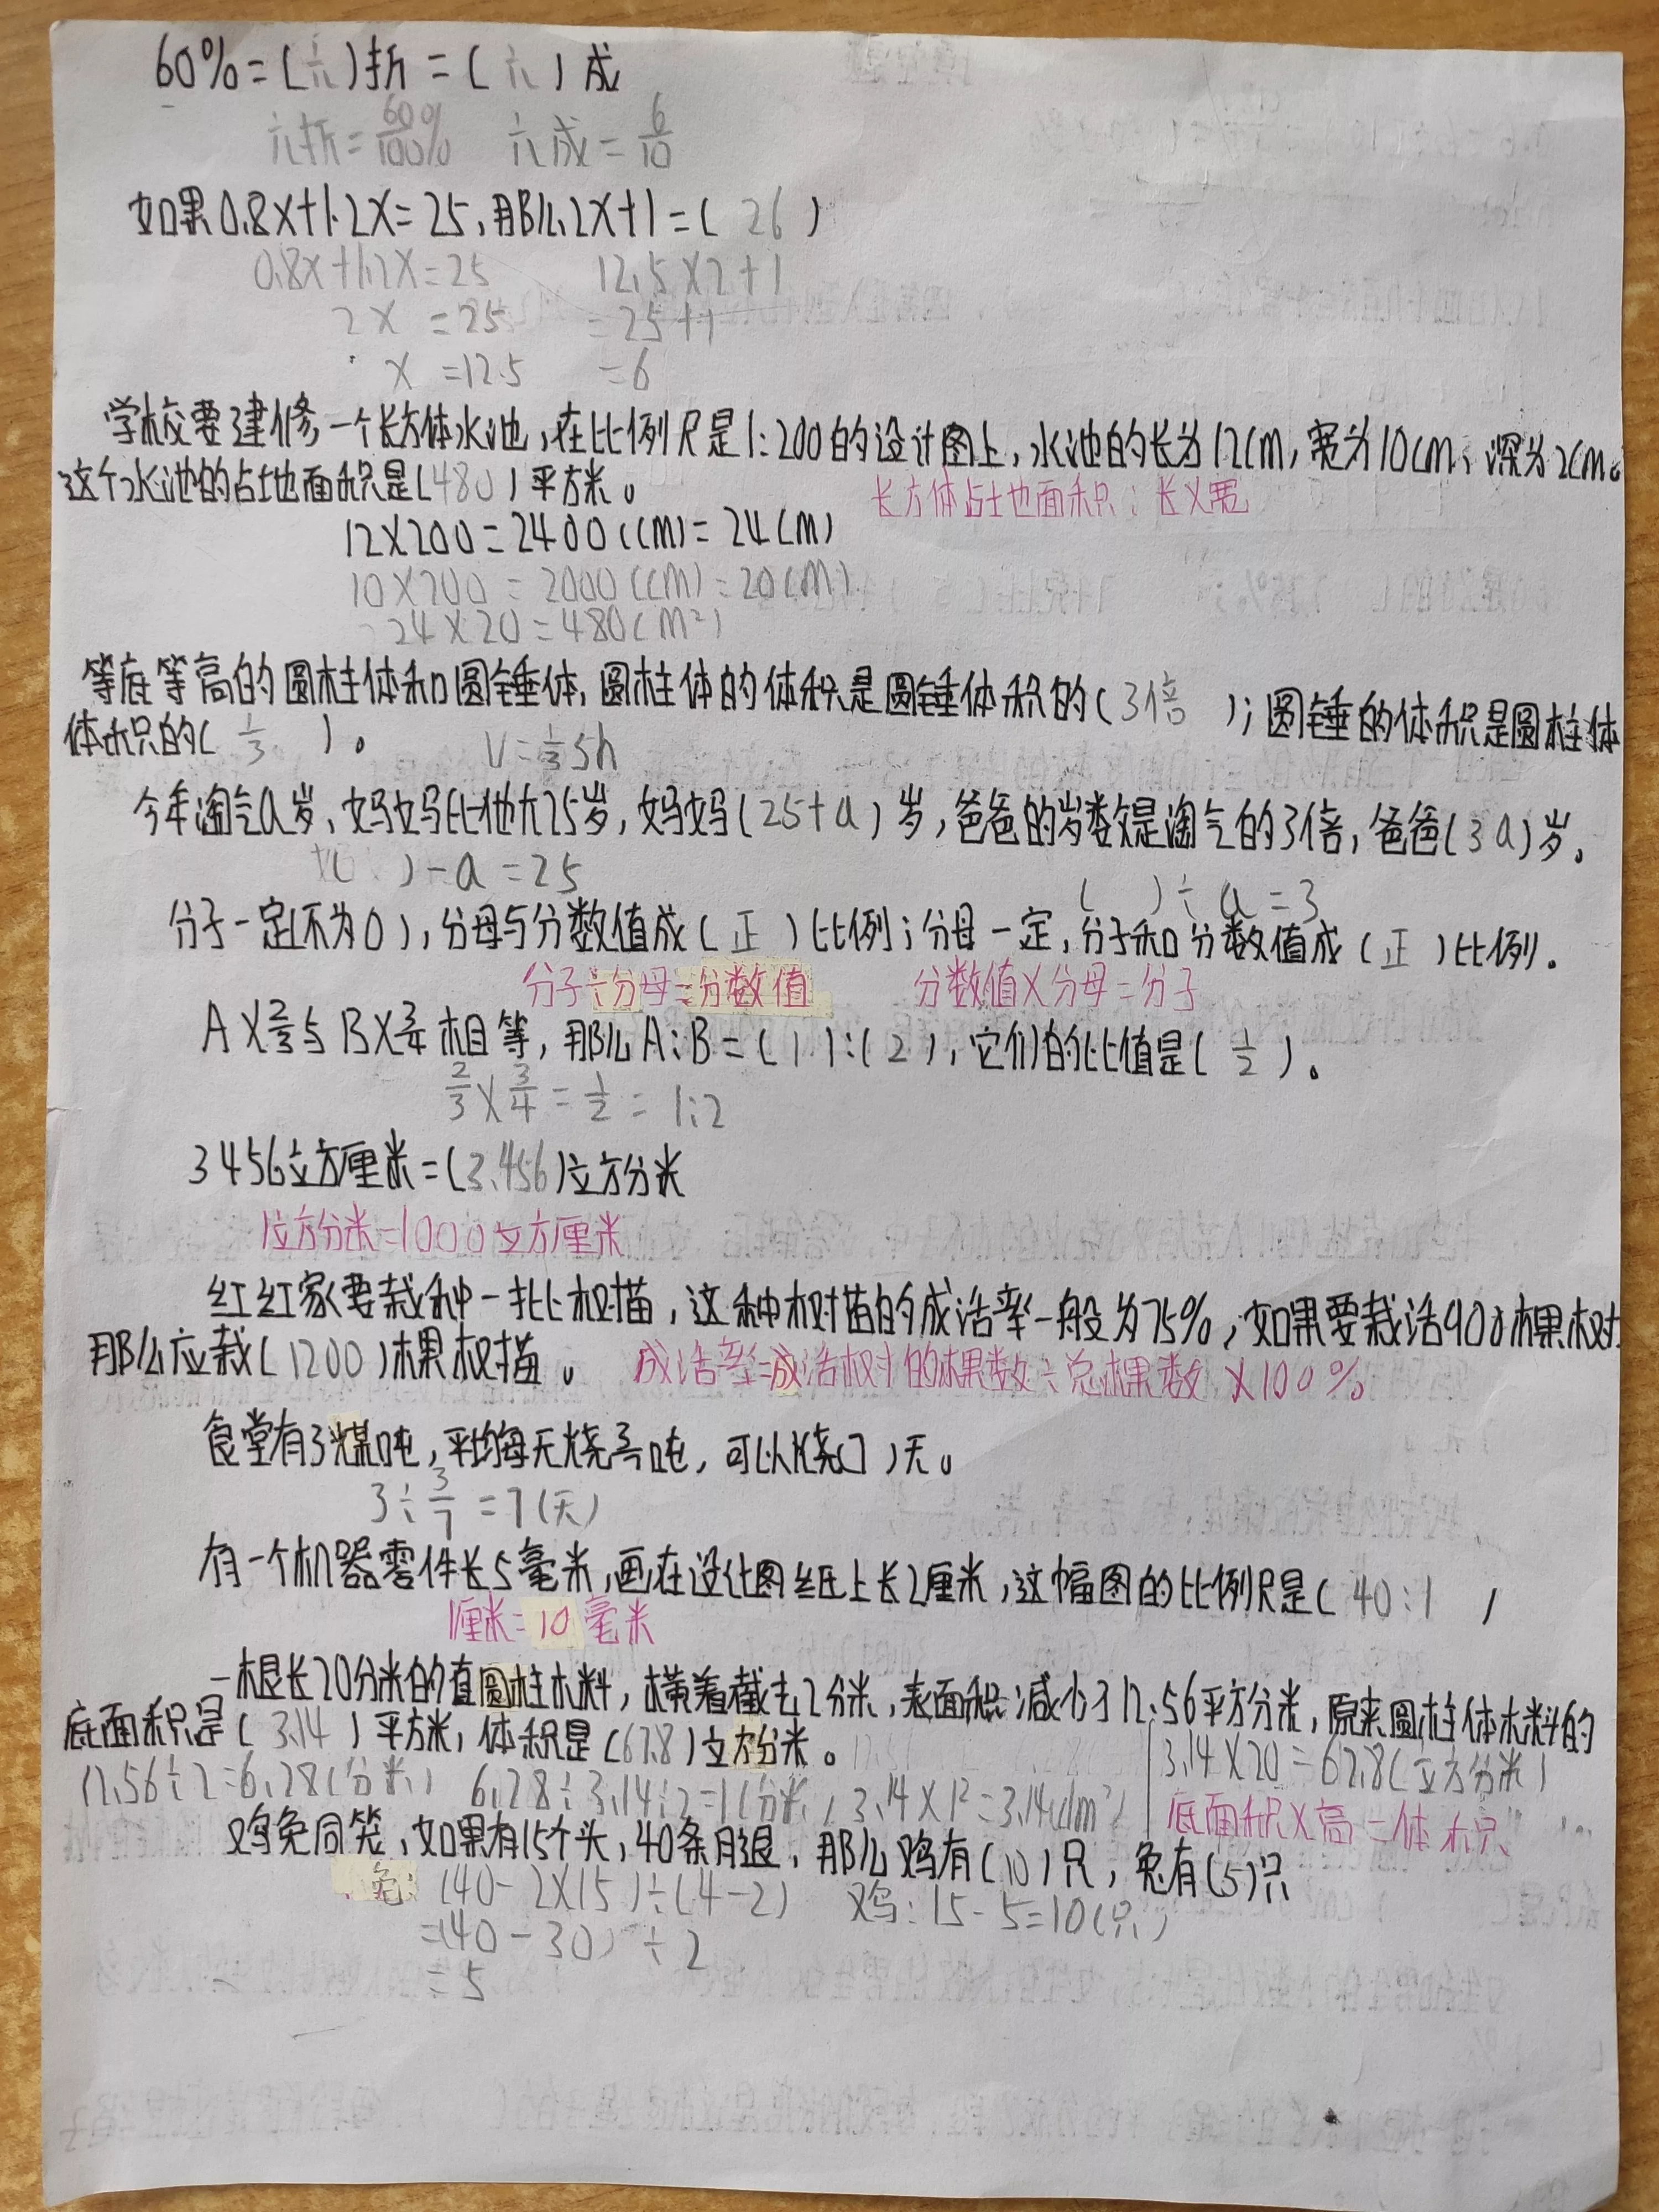 60%=(六)折=(六)成
六折=60%/100% 六成=6/10
如果0.8X+1.2X=25,那么2X+1=(26)
0.8X+1.2X=25 12.5X2+1
2X=25 =25+1
X=12.5 =6
学校要建修一个长方体水池,在比例尺是1:200的设计图上,水池的长为12cm,宽为10cm,深为2cm。
这个水池的占地面积是(480)平方米。 长方体占地面积:长X宽
12X200=2400(cm)=24(m)
10X200=2000(cm)=20(m)
24X20=480(m²)
等底等高的圆柱体和圆锤体,圆柱体的体积是圆锤体积的(3倍);圆锤的体积是圆柱体
体积的(1/3)。 V=1/3Sh
今年淘气a岁,妈妈比他大25岁,妈妈(25+a)岁,爸爸的岁数是淘气的3倍,爸爸(3a)岁。
( )-a=25 ( )÷a=3
分子一定(不为0),分母与分数值成(正)比例;分母一定,分子和分数值成(正)比例。
分子÷分母=分数值 分数值X分母=分子
AX2/3与BX3/4相等,那么A:B=(1):(2),它们的比值是(1/2)。
2/3X3/4=1/2=1:2
3456立方厘米=(3.456)立方分米
1立方分米=1000立方厘米
红红家要栽种一批树苗,这种树苗的成活率一般为75%,如果要栽活900棵树
那么应栽(1200)棵树苗。 成活率=成活树的棵数÷总棵数X100%
食堂有3煤吨,平均每天烧3/7吨,可以烧(7)天。
3÷3/7=7(天)
有一个机器零件长5毫米,画在设计图纸上长2厘米,这幅图的比例尺是(40:1)
1厘米=10毫米
一根长20分米的直圆柱木料,横着截去2分米,表面积减少了12.56平方分米,原来圆柱体木料的
底面积是(3.14)平方米,体积是(62.8)立方分米。 3.14X20=62.8(立方分米)
12.56÷2=6.28(分米) 6.28÷3.14÷2=1(分米) 3.14X1²=3.14(dm²) 底面积X高=体积
鸡兔同笼,如果有15个头,40条腿,那么鸡有(10)只,兔有(5)只
兔:(40-2X15)÷(4-2) 鸡:15-5=10(只)
=(40-30)÷2
=5